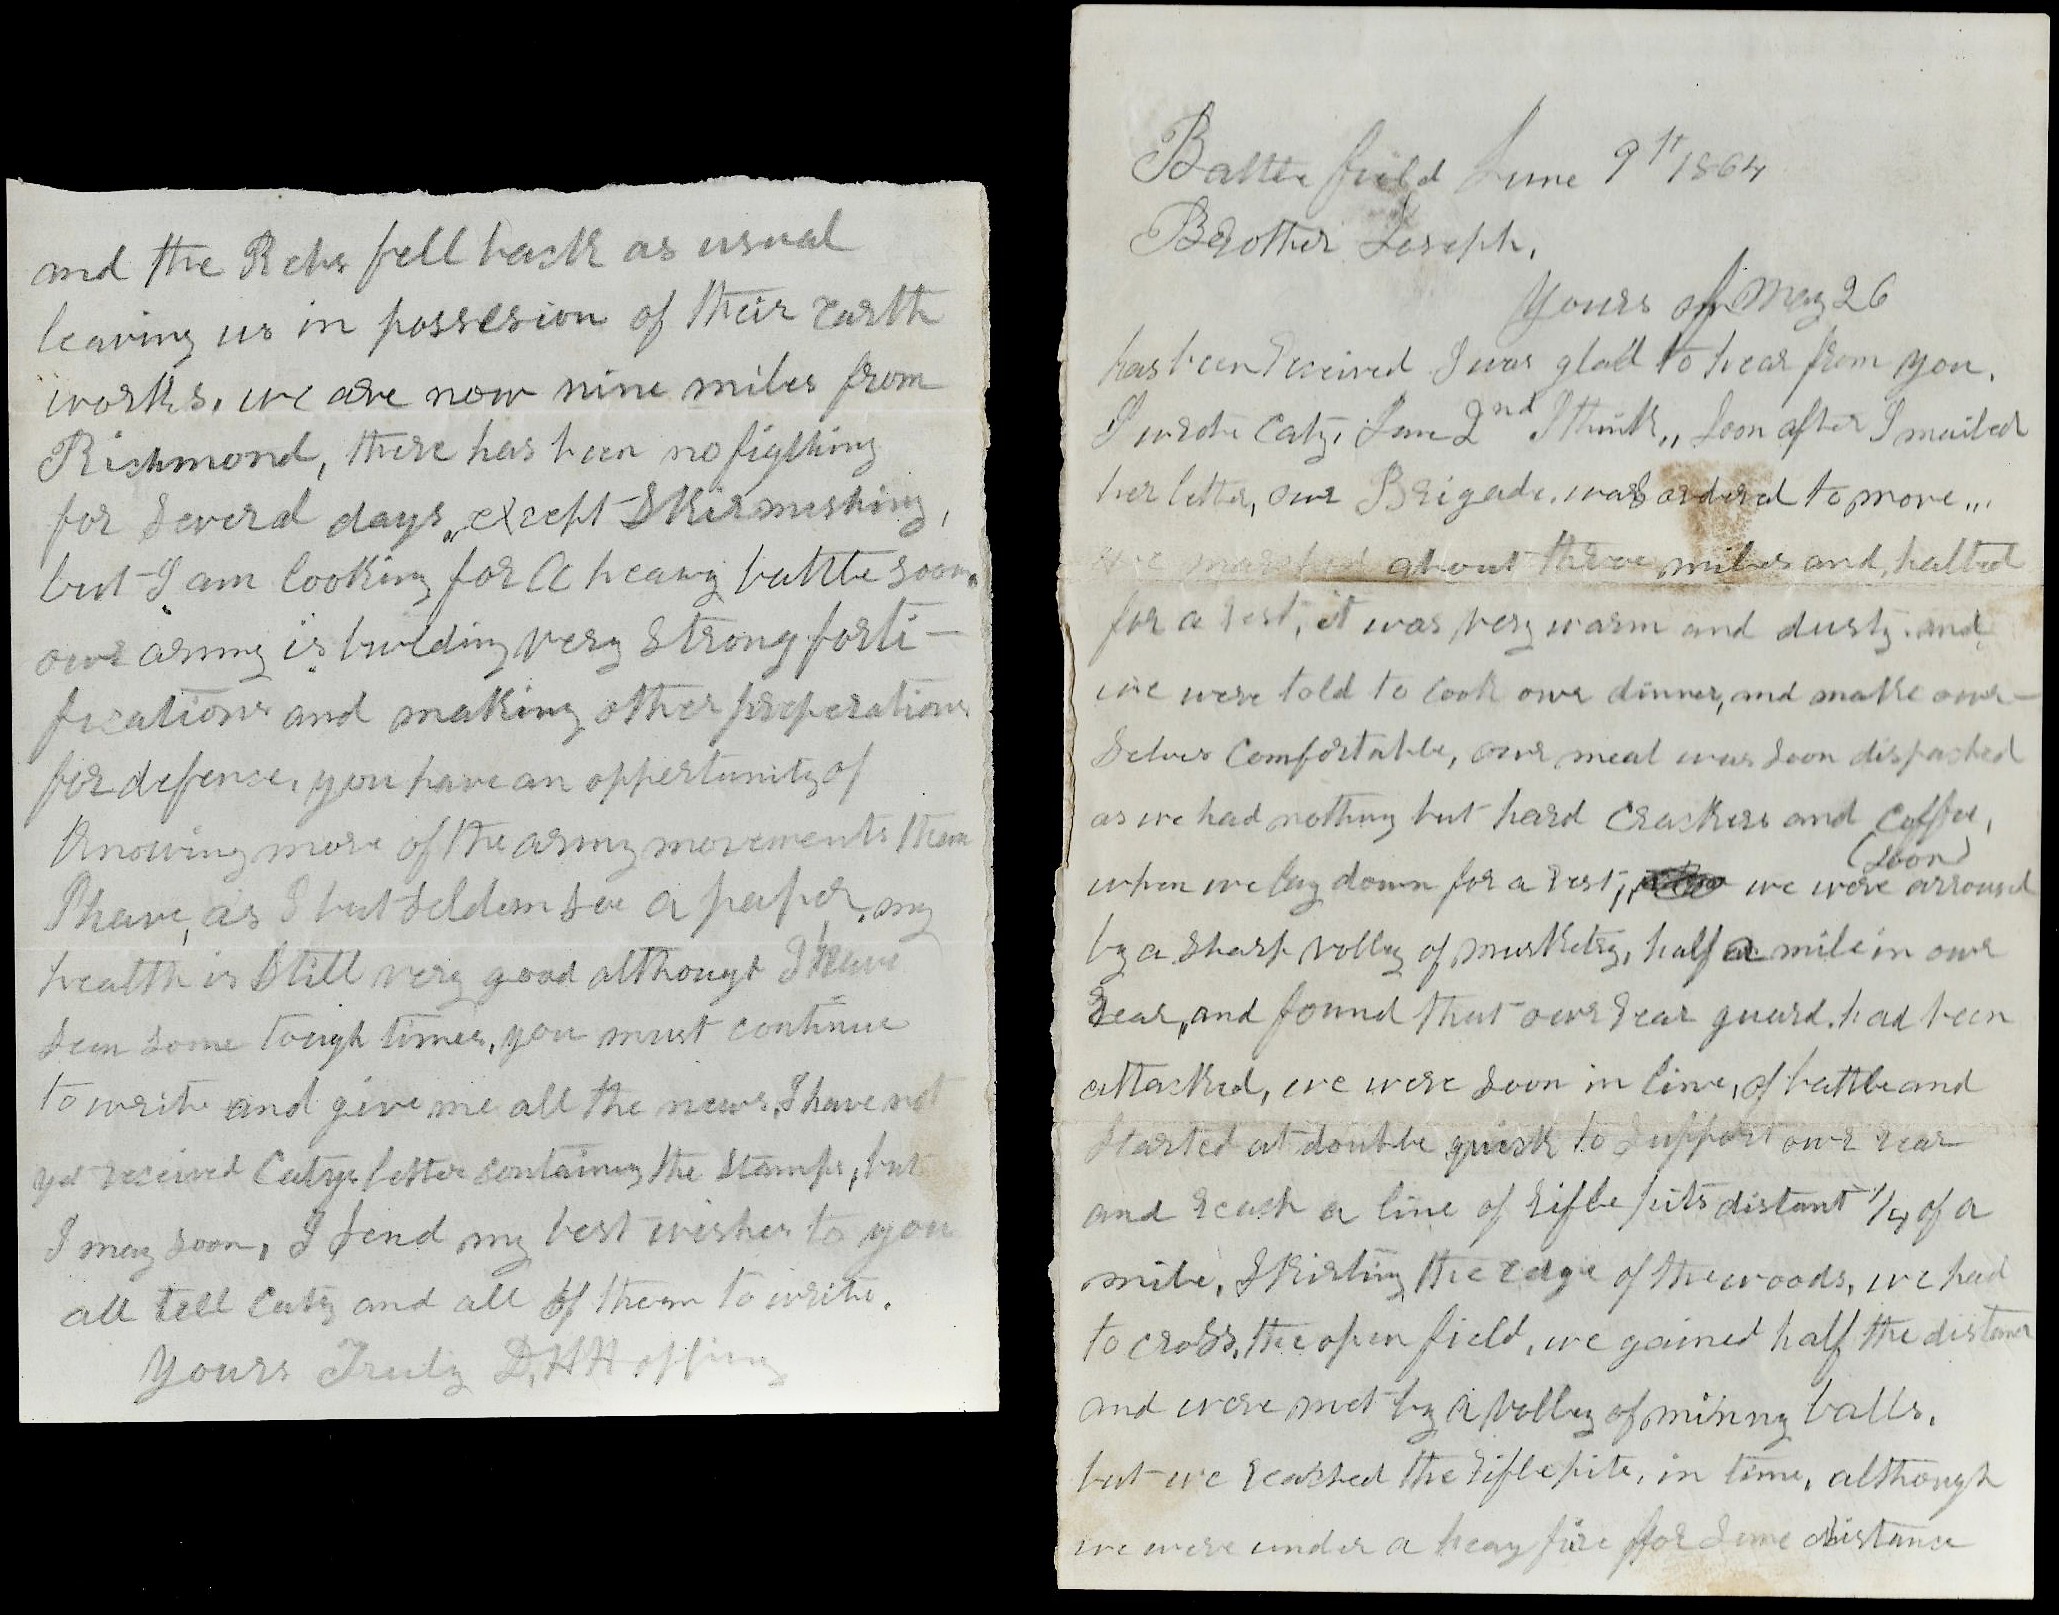 Battle field June 9th 1864
Brother Joseph,
Yours of May 26
has been received I was glad to hear from you.
I wrote Caty, June 2nd I think,, Soon after I mailed
her letter, our Brigade. was ordered to move,,.
we marched about three miles and, halted
for a rest, it was very warm and dusty. and
we were told to cook our dinner, and make our-
selves Comfortable, our meal was soon dispached
as we had nothing but hard Crackers and Coffee,
when we lay down for a rest, we (soon) were arroused
by a sharp volley of musketry, half a mile in our
rear, and found that our rear guard. had been
attacked, we were soon in line, of battle and
started at double quick to support our rear
and reach a line of rifle pits distant 1/4 of a
mile, Skirting the edge of the woods, we had
to cross, the open field, we gained half the distance
and were met by a volley of minny balls.
but we reached the rifle pits, in time, although
we were under a heavy fire for some distance
and the Rebs fell back as usual
leaving us in possesion of their earth
works. we are now nine miles from
Richmond, there has been no fighting
for several days,, except Skirmishing,
but I am looking for A heavy battle soon.
our army is building very strong forti-
fications and making other preperations
for defense. you have an oppertunity of
Knowing more of the army movements than
I have, as I but seldom see a paper. my
health is still very good although I have
seen some tough times, you must continue
to write and give me all the news, I have not
yet received Catys letter containing the stamps, but
I may soon, I send my best wishes to you
all tell Caty and all of them to write.
Yours Truly D, H Hopping